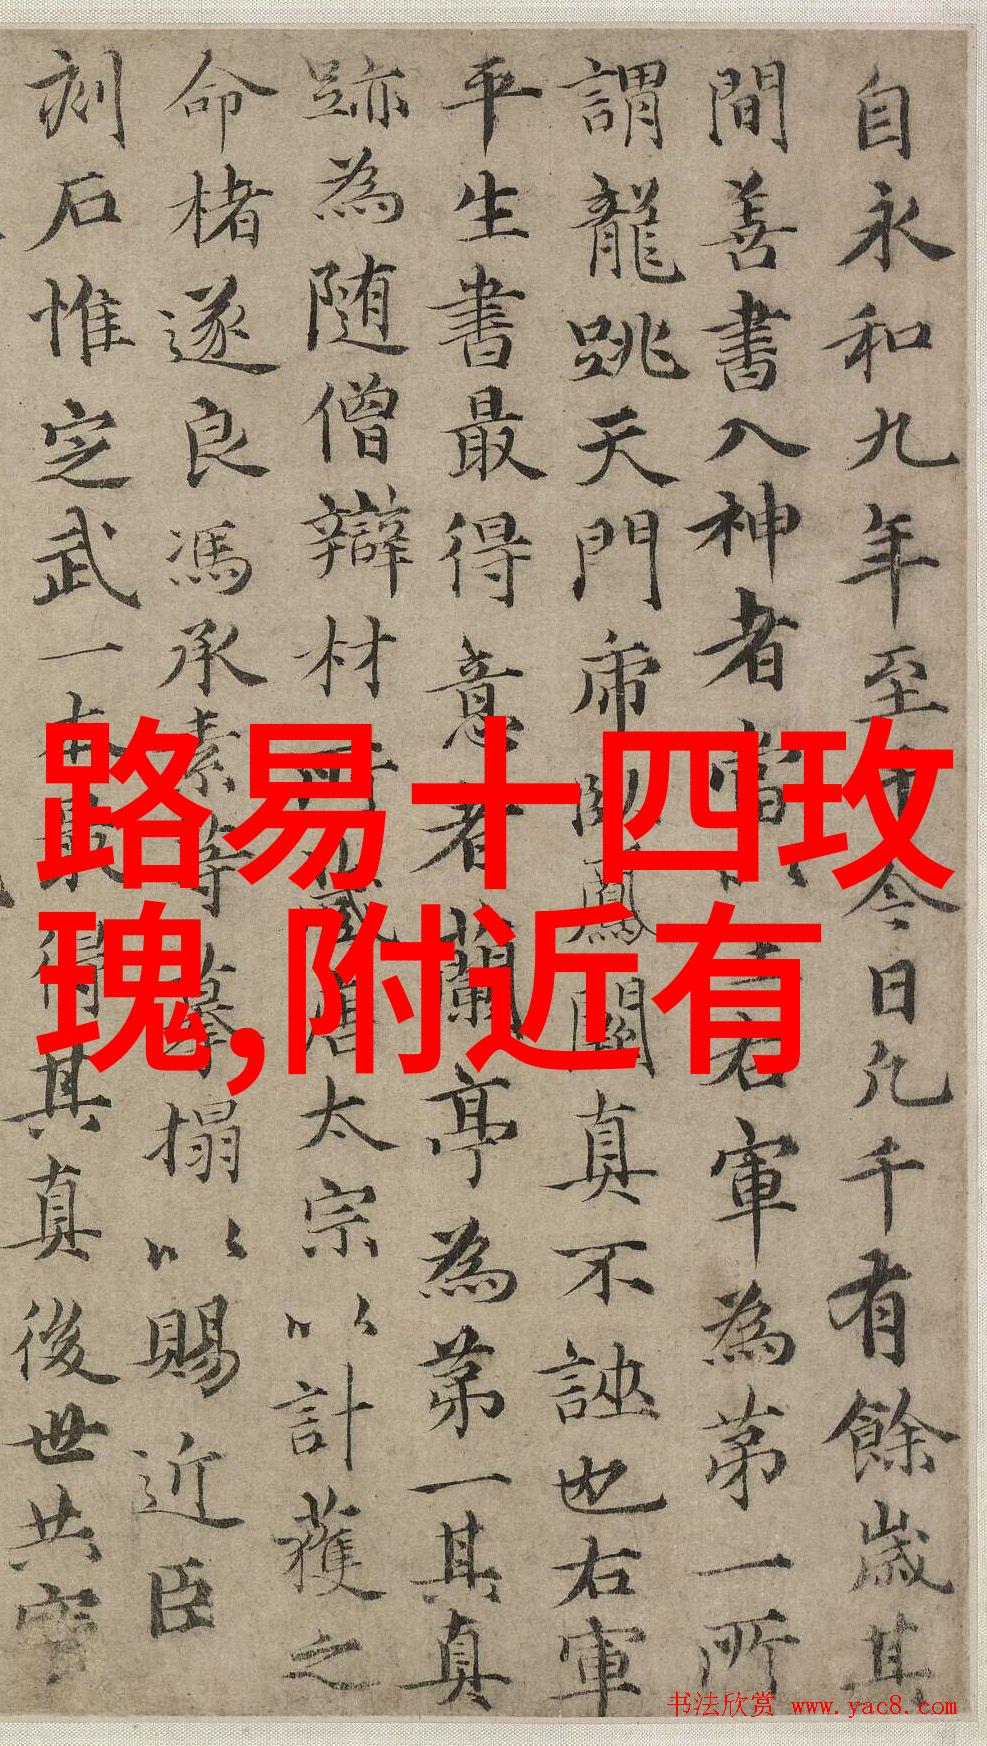 自永和九年至今日凡千有餘歲其
間善書入神者當以王右軍為第一所
謂龍跳天門虎卧鳳闕真不誣也右軍
平生書最得意者蘭亭為第一其真
跡為随僧辯材所藏唐太宗以計獲之
命楮遂良馮承素等摹搨以賜近臣
刻石惟定武一本最得其真後世共寳
路易十四玫
瑰,附近有
书法欣赏 www.yac8.com